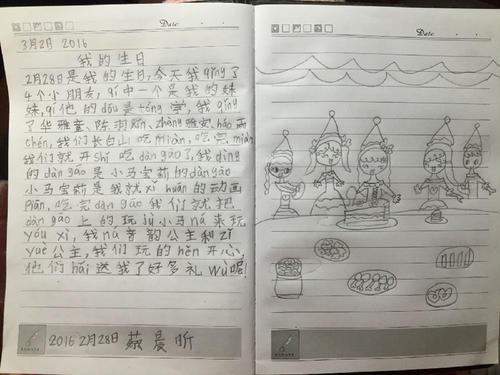 Date
3月2日 2016
我的生日
2月28日是我的生日,今天我qǐng了
4个小朋友,qí中一个是我的妹
妹,qí他的dōu是tóng学,我qǐng
了华雅童、陈羽xīn、zhāng雅安、
chén,我们长白山吃miàn,吃完miàn
我们就开shǐ吃dàn gāo了,我dìng
的dàn gāo是小马宝莉的dàn gāo
小马宝莉是我就xǐ huān的动画
Piān,吃完dàn gāo我们就把
dàn gāo上的玩jù小马ná来玩
yóu xì,我ná音韵公主和zǐ
yuè公主,我们玩的hěn开心,
他们hái送我了好多礼wù呢!
2016 2月28日 蔡晨昕
Date